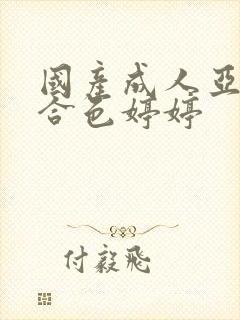 國產成人亞
合色婷婷
付毅飛